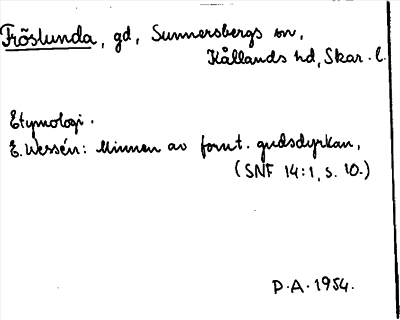 Fröslunda, gd, Sunnersbergs sn,
Kållands hd, Skar. l.
Etymologi.
E. Wessén: Minnen av fornt. gudsdyrkan,
(SNF 14:1, s. 10.)
P.A. 1954.